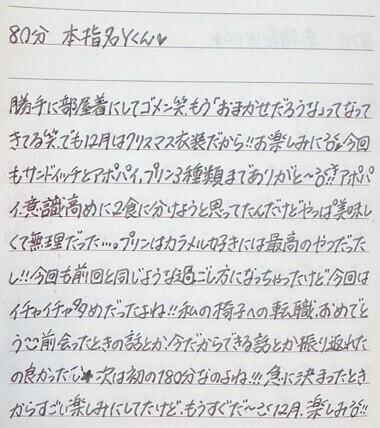 80分 本指名Yくん♥
勝手に部屋着にしてゴメン笑、もう「おまかせだろうな」ってなって
きてる笑、でも12月はクリスマス衣装だから!!お楽しみに 今回
もサンドイッチとアポパイ、プリン3種類までありがと〜 アポパ
イ、意識高めに2食に分けようと思ってたんだけどやっぱ美味し
くて無理だった…。プリンはカラメル好きには最高のやつだった
し!!今回も前回と同じような過ごし方になっちゃったけど今回は
イチャイチャ多めだったよね!!私の椅子への転職、おめでと
う 前会ったときの話とか、今だからできる話とか振り返れた
の良かった 次は初の180分なのよね!!!急に決まったとき
からすごい楽しみにしてたけど、もうすぐだ〜 12月、楽しみ!!